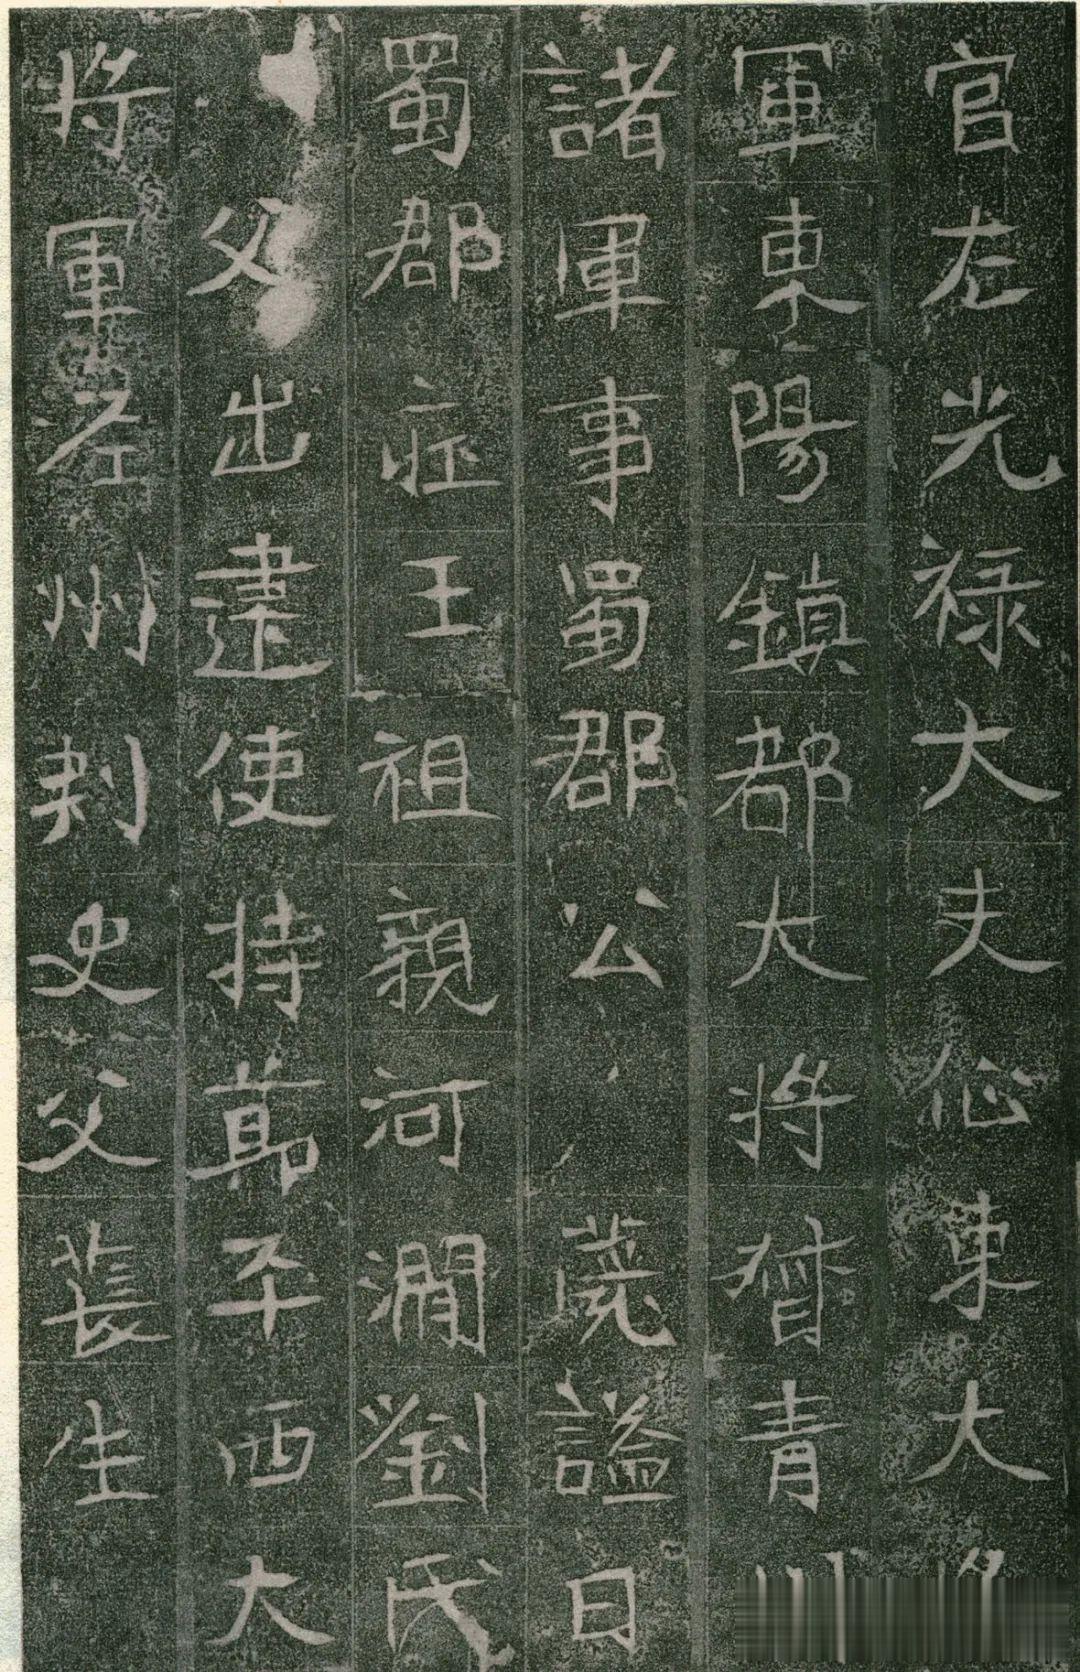 官左光禄大夫東大
軍東陽鎮都大將督青
諸軍事蜀郡公薨謚曰
蜀郡莊王祖親河澗劉氏
父出建使持節平西大
將軍左州刺史父萇生